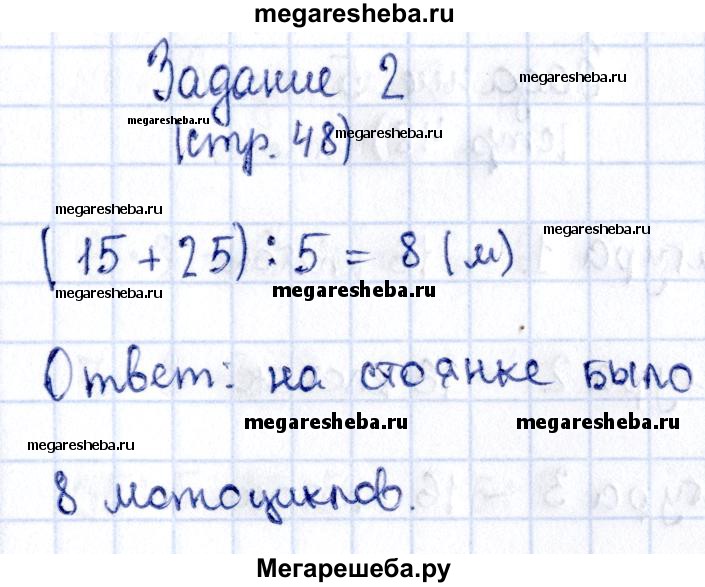 megaresheba.ru
Задание 2
megaresheba.ru
megaresheba.ru
(стр. 48)
megaresheba.ru
megaresheba.ru
megaresheba.ru
(15 + 25) : 5 = 8 (м)
megaresheba.ru
megaresheba.ru
Ответ: на стоянке было
megaresheba.ru
megaresheba.ru
megaresheba.ru
8 мотоциклов.
Мегарешеба.ру